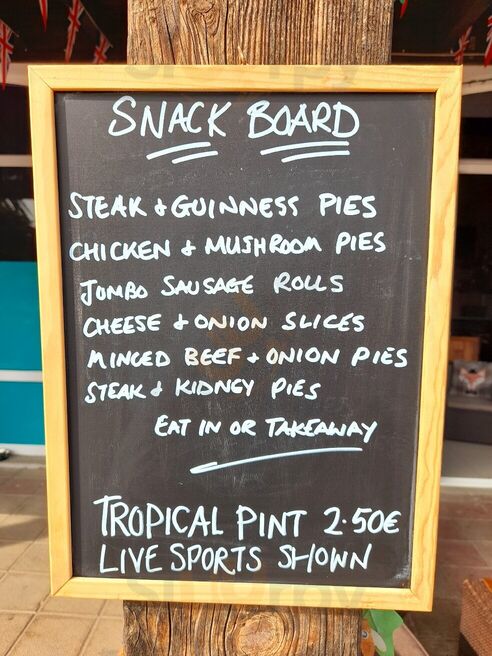 SNACK BOARD
STEAK & GUINNESS PIES
CHICKEN & MUSHROOM PIES
JOMBO SAUSAGE ROLLS
CHEESE & ONION SLICES
MINCED BEEF & ONION PIES
STEAK & KIDNEY PIES
EAT IN OR TAKEAWAY
TROPICAL PINT 2.50€
LIVE SPORTS SHOWN